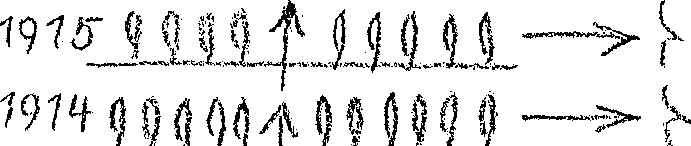 1915
1914